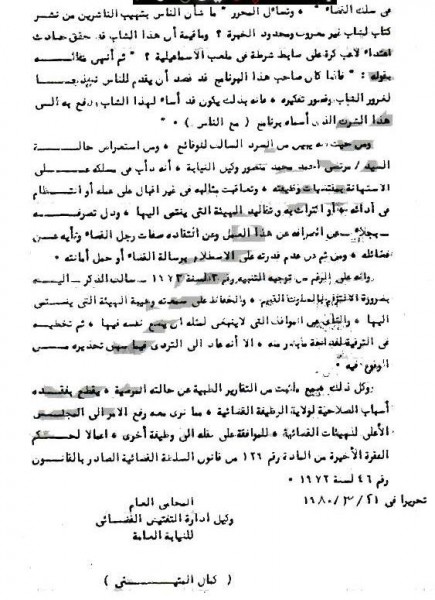 فى سلك القضاء " وتساءل المحرر " ما شأن الناس بتهيب الناشرين من نشر
كتاب لشاب غير معروف ومحدود الخبرة ؟ وما قيمة أن هذا الشاب قد حقق حادث
اعتداء لاعب كرة على ضابط شرطة فى ملعب الاسماعيلية ؟ " ثم أنهى مقاله
بقوله : " فاذا كان صاحب هذا البرنامج قد قصد أن يقدم للناس
لغرور الشباب وقصور تفكيره ، فانه بذلك يكون قد أساء لهذا الشاب ودفع به الى
هذا الشرك الذى أسماه برنامج ( مع الناس )
ومن حيث أنه يبين من السرد السالف للوقائع ، ومن استعراض حالة
السيد / مرتضى أحمد محمد منصور وكيل النيابة ، أنه دأب فى مسلكه على
الاستهانة بمقتضيات وظيفته ، وتعاقبت مثالبه فى غير اقبال على عمله أو انتظام
فى أدائه ، أو اكتراث به وبتقاليد الهيئة التى ينتمى اليها ، ودل تصرفه
بجلاء عن انصرافه عن هذا العمل وعن افتقاده صفات رجل القضاء ونأيه عن
فضائله ، ومن ثم عن عدم قدرته على الاضطلاع برسالة القضاء أو حمل أمانته ،
وانه على الرغم من توجيه التنبيه رقم ٣ لسنة ١٩٧٣ سالف الذكر اليه
بضرورة الالتزام بالسلوك القويم ، والحفاظ على سمعته وهيبة الهيئة التى ينتمى
اليها ، والنأى عن المواقف التى لا ينبغى لمثله أن يضع نفسه فيها ، ثم تخطيه
فى الترقية لفداحة ما بدر منه ، الا أنه عاد الى التردى فيما سبق تحذيره من
الوقوع فيه ،
وكل ذلك جميع وأثبت من التقارير الطبية عن حالته المرضية ، يقطع بفقده
أسباب الصلاحية لولاية الوظيفة القضائية ، مما نرى معه رفع الامر الى المجلس
الأعلى للهيئات القضائية ، للموافقة على نقله الى وظيفة أخرى ، اعمالا لحكم
الفقرة الأخيرة من المادة رقم ١٢٩ من قانون السلطة القضائية الصادر بالقانون
رقم ٤٦ لسنة ١٩٧٢ ،
تحريرا فى ٢١ / ٣ / ١٩٨٠
المحامى العام
وكيل ادارة التفتيش القضائى
للنيابة العامة
( كمال المتينى )